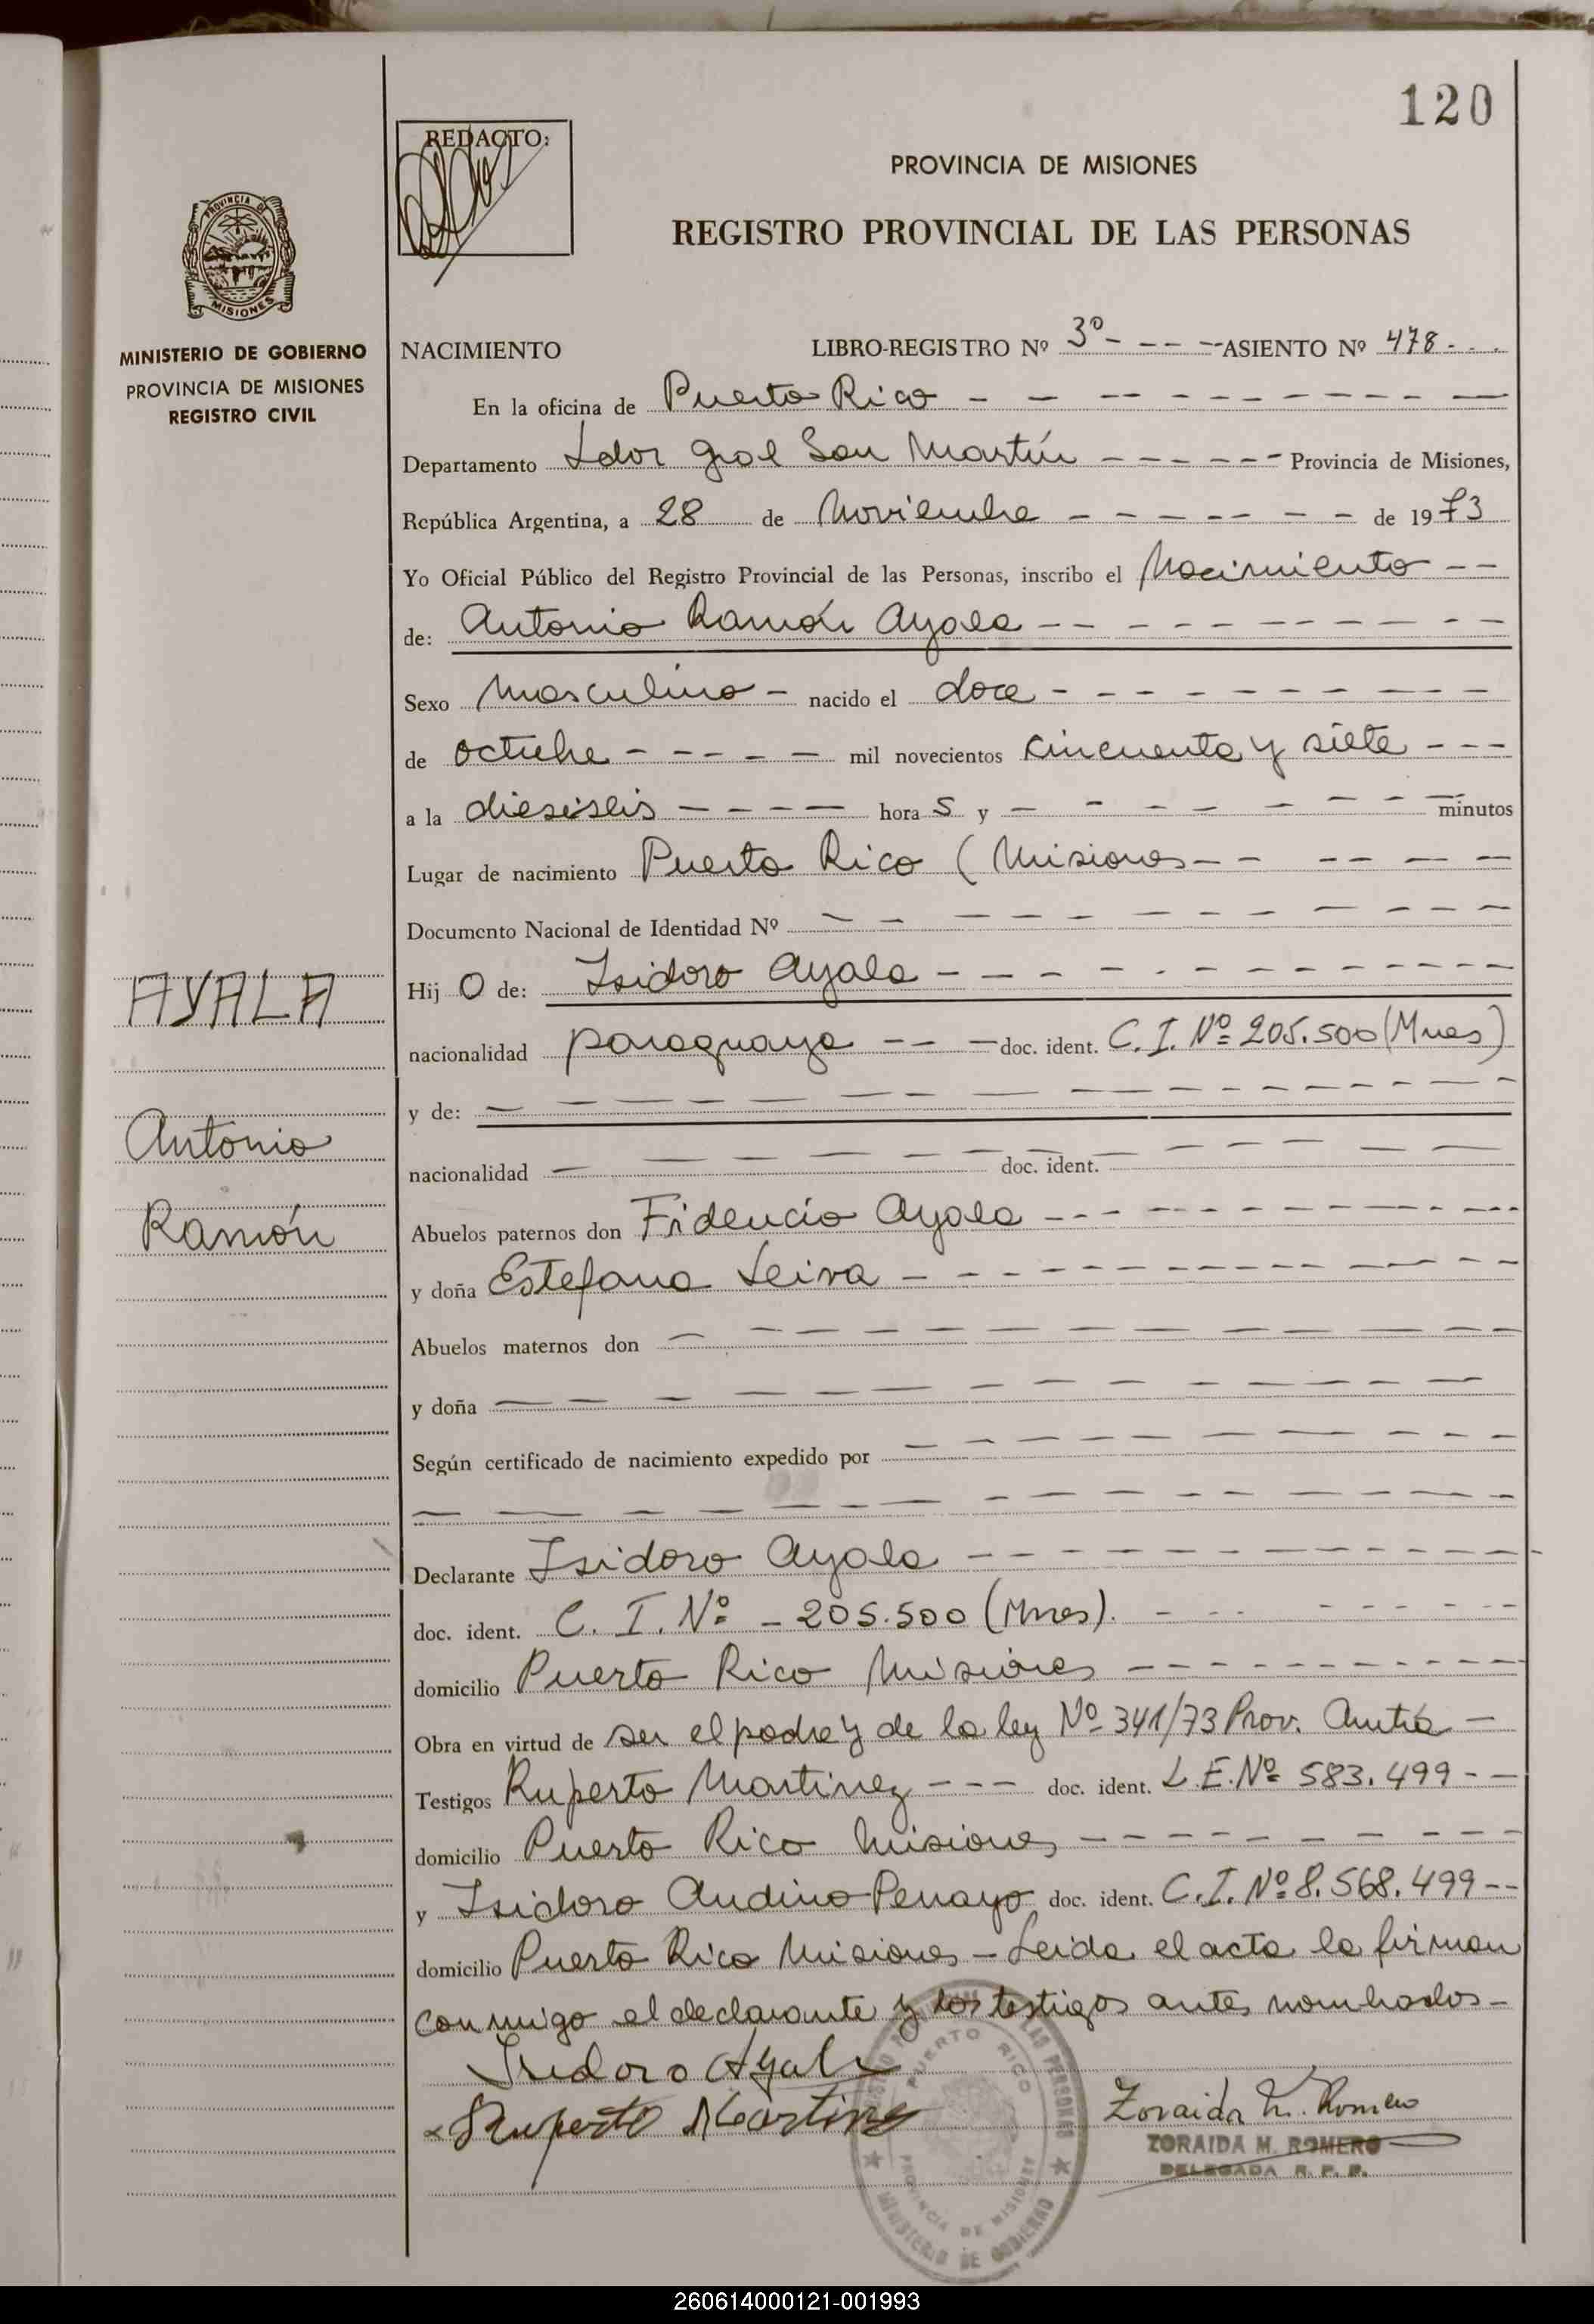 120
REDACTO:
PROVINCIA DE MISIONES
REGISTRO PROVINCIAL DE LAS PERSONAS
PROVINCIA DE
MISIONES
MINISTERIO DE GOBIERNO
PROVINCIA DE MISIONES
REGISTRO CIVIL
NACIMIENTO LIBRO-REGISTRO Nº 3º - - - - ASIENTO Nº 478 - . .
En la oficina de Puerto Rico - - - - - - - - - - -
Departamento Ldor Gral San Martín - - - - - - Provincia de Misiones,
República Argentina, a 28 de Noviembre - - - - - - - de 1973
Yo Oficial Público del Registro Provincial de las Personas, inscribo el Nacimiento - -
de: Antonio Ramón Ayala - - - - - - - - - - -
Sexo Masculino - nacido el doce - - - - - - - - - -
de octubre - - - - - mil novecientos cincuenta y siete - - -
a la dieseseis - - - - hora s y - - - - - - - - minutos
Lugar de nacimiento Puerto Rico ( Misiones - - - - - -
Documento Nacional de Identidad Nº - - - - - - - - - - -
Hij o de: Isidoro Ayala - - - - - - - - - - - -
AYALA
nacionalidad paraguaya - - - doc. ident. C. I. Nº 205.500 (Mnes)
y de: - - - - - - - - - - - - -
Antonio
nacionalidad - - - - - - - doc. ident. - - - - - -
Ramón
Abuelos paternos don Fidencio Ayala - - - - - - - - - - -
y doña Estefana Leiva - - - - - - - - - - - -
Abuelos maternos don - - - - - - - - - - -
y doña - - - - - - - - - - - - -
Según certificado de nacimiento expedido por - - - - - - - - -
- - - - - - - - - - - - - -
Declarante Isidoro Ayala - - - - - - - - - - - -
doc. ident. C. I. Nº - 205.500 (Mnes). - - - - - - - -
domicilio Puerto Rico Misiones - - - - - - - - - -
Obra en virtud de ser el padre y de la ley Nº 341/73 Prov. Autía -
Testigos Ruperto Martinez - - - doc. ident. L.E. Nº 583.499 - -
domicilio Puerto Rico Misiones - - - - - - - - -
y Isidoro Andino Penayo doc. ident. C.I. Nº 8.568.499 - -
domicilio Puerto Rico Misiones - Leida el acta la firman
conmigo el declarante y los testigos antes nombrados -
Isidoro Ayala
Ruperto Martinez
Zoraida M. Romero
ZORAIDA M. ROMERO
DELEGADA R. P. P.
PUERTO RICO
PROVINCIA DE MISIONES
MINISTERIO DE GOBIERNO
260614000121-001993